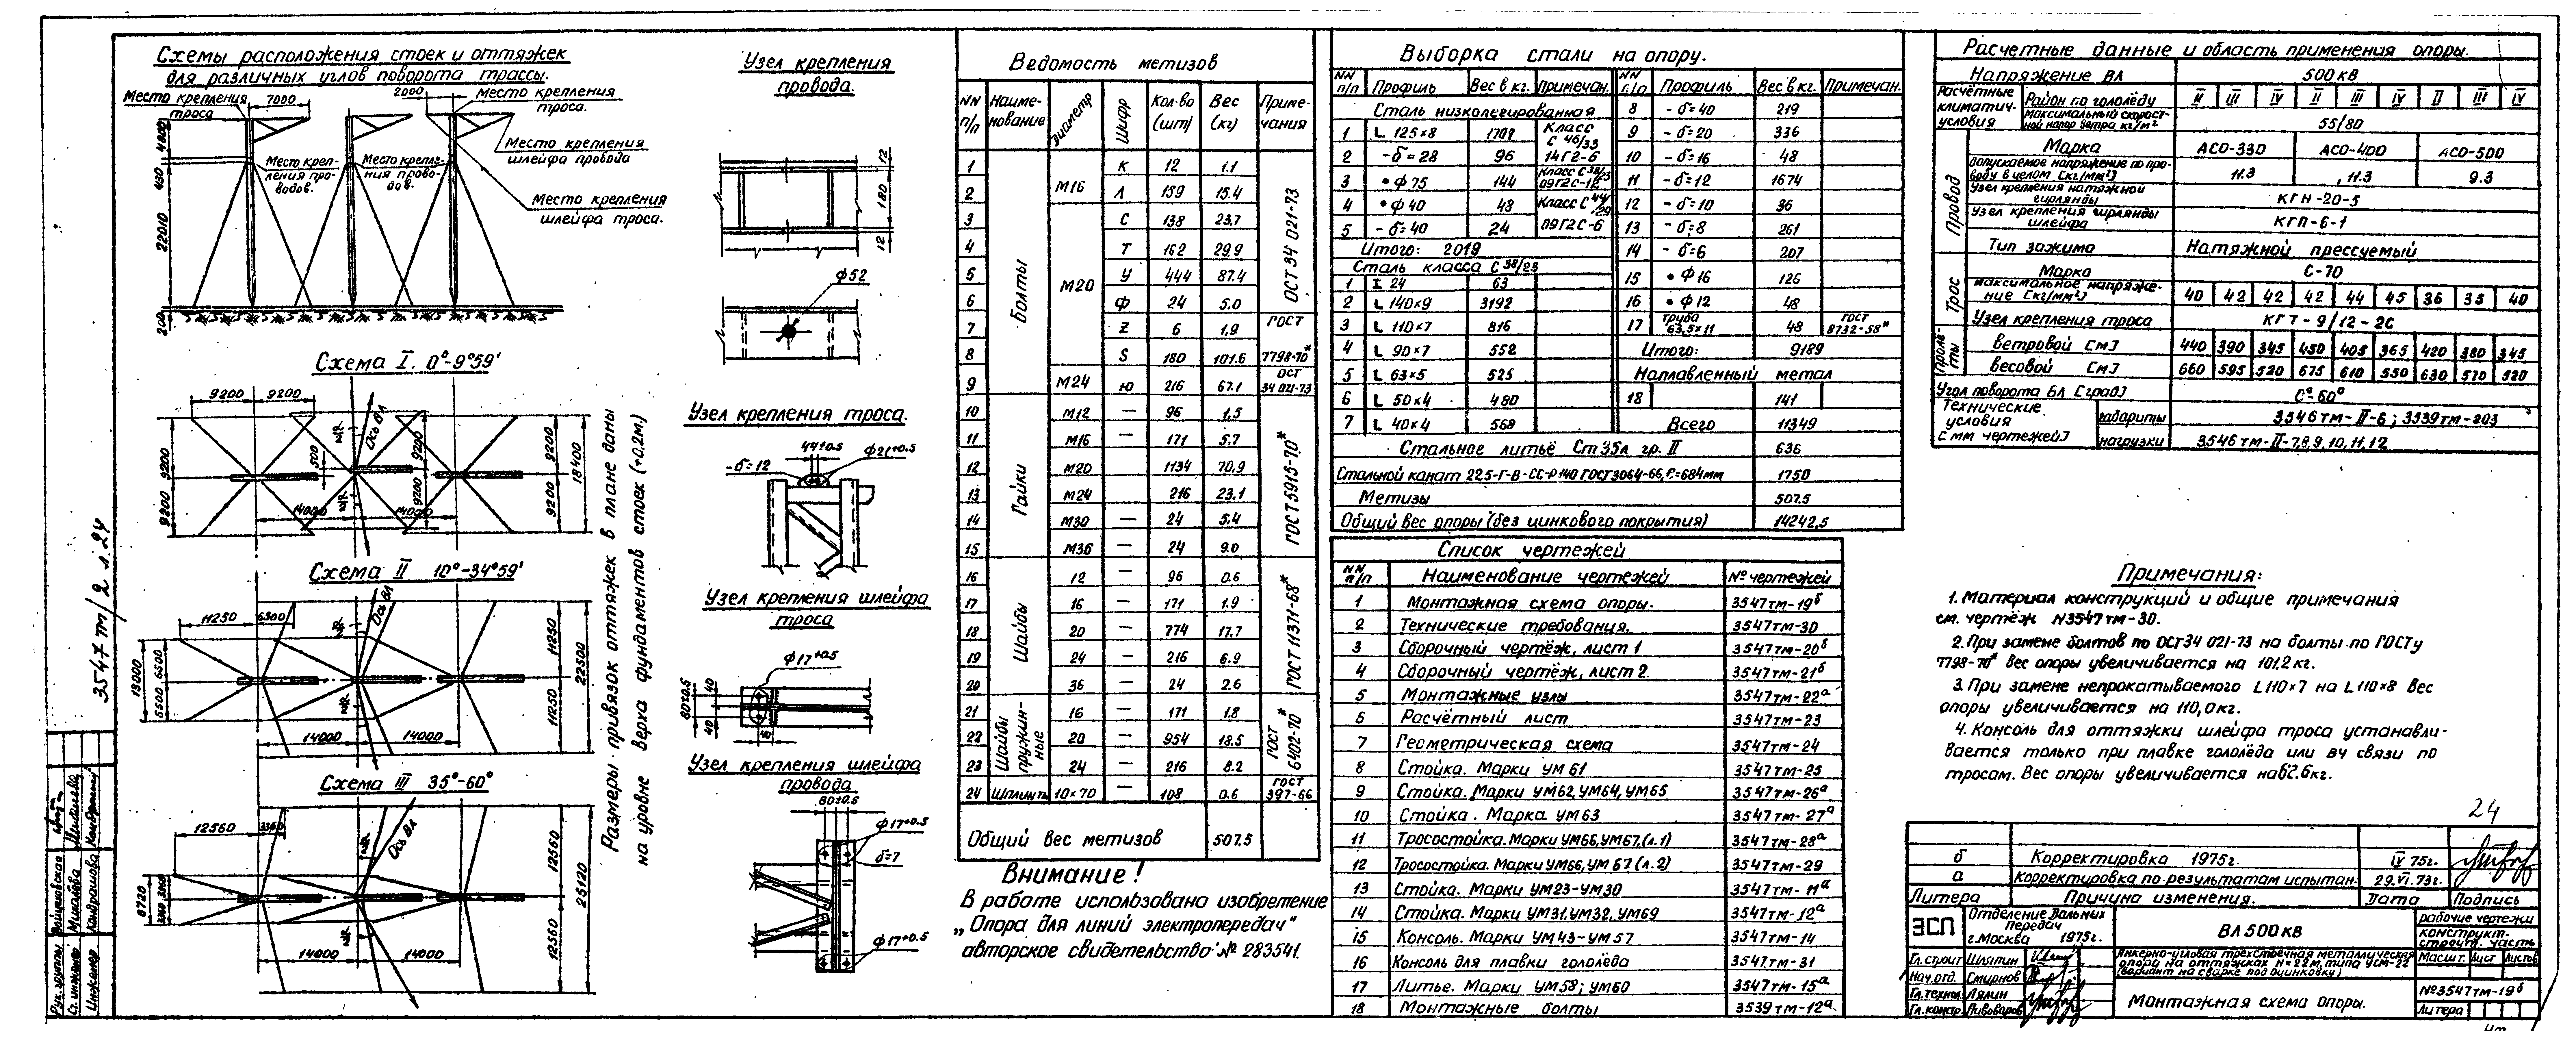 Схемы расположения стоек и оттяжек
для различных углов поворота трассы.
Место крепления
троса
7000
2000
Место крепления
троса.
Место крепления
шлейфа провода
Место креп-
ления про-
водов.
Место крепле-
ния прово-
дов.
Место крепления
шлейфа троса.
430
22010
200
Схема I. 0°-9°59'
9200 9200
Ось ВЛ
9200 9200
500
9200 9200
9200 9200
18400
14000 14000
Схема II 10°-34°59'
11250 6300
Ось ВЛ
13000
6500 6500
11250 11250
22500
14000 14000
Схема III 35°-60°
12560 3360
Ось ВЛ
6720
3360 3360
12560 12560
25120
14000 14000
Размеры привязок оттяжек в плане даны
на уровне верха фундаментов стоек (+0,2м)
3547тм/2 л.24
Рук. группы
Ст. инженер Михалёва
Инженер Кондрашова
Узел крепления
провода.
12
180
12
ф52
Узел крепления троса.
44±0.5
ф21+0.5
-δ=12
Узел крепления шлейфа
троса
ф17+0.5
80±0.5
40 40
Узел крепления шлейфа
провода
80±0.5
ф17+0.5
δ=7
ф17+0.5
Ведомость метизов
NN п/п Наиме-нование Диаметр Шифр Кол-во (шт) Вес (кг) Приме-чания
Болты
1 М16 К 12 1.1 ОСТ 34 021-73
2 Л 159 15.4
3 М20 С 138 23,7
4 Т 162 29,9
5 У 444 87.4
6 Ф 24 5.0
7 Z 6 1,9 ГОСТ
8 S 180 101.6 7798-70*
9 М24 Ю 216 67.1 ОСТ 34 021-73
Гайки
10 М12 — 96 1,5 ГОСТ 5915-70*
11 М16 — 171 5.7
12 М20 — 1134 70,9
13 М24 — 216 23,1
14 М30 — 24 5.4
15 М36 — 24 9.0
Шайбы
16 12 — 96 0.6 ГОСТ 11371-68*
17 16 — 171 1.9
18 20 — 774 17.7
19 24 — 216 6.9
20 36 — 24 2.6
Шайбы пружин-ные
21 16 — 171 1.8 ГОСТ 6402-70*
22 20 — 954 18.5
23 24 — 216 8.2
24 Шплинты 10×70 — 108 0.6 ГОСТ 397-66
Общий вес метизов 507,5
Внимание!
В работе использовано изобретение
„Опора для линий электропередач"
авторское свидетельство № 283541.
Выборка стали на опору.
NN п/п Профиль Вес в кг. Примечан. NN п/п Профиль Вес в кг. Примечан.
Сталь низколегированная 8 - δ=40 219
1 L 125×8 1707 Класс С 46/33 9 - δ=20 336
2 -δ=28 96 14Г2-6 10 - δ=16 48
3 •ф75 144 Класс С 38/23 09Г2С-12 11 - δ=12 1674
4 •ф40 48 Класс С 44/29 12 - δ=10 36
5 - δ=40 24 09Г2С-6 13 - δ=8 261
Итого: 2019 14 - δ=6 207
Сталь класса С 38/23 15 • ф16 126
1 I 24 63
2 L 140×9 3192 16 • ф12 48
3 L 110×7 816 17 труба 63,5×11 48 ГОСТ 8732-58*
4 L 90×7 552 Итого: 9189
5 L 63×5 525 Наплавленный метал
6 L 50×4 480 18 141
7 L 40×4 568 Всего 11349
Стальное литьё Ст 35л гр. II 636
Стальной канат 22.5-Г-В-СС-Р 140 ГОСТ 3064-66, ℓ=684мм 1750
Метизы 507.5
Общий вес опоры (без цинкового покрытия) 14242,5
Список чертежей
NN п/п Наименование чертежей № чертежей
1 Монтажная схема опоры. 3547тм-19б
2 Технические требования. 3547тм-30
3 Сборочный чертёж, лист 1 3547тм-20б
4 Сборочный чертёж, лист 2. 3547тм-21б
5 Монтажные узлы 3547тм-22а
6 Расчётный лист 3547тм-23
7 Геометрическая схема 3547тм-24
8 Стойка. Марки УМ 61 3547тм-25
9 Стойка. Марки УМ62, УМ64, УМ65 3547тм-26а
10 Стойка. Марка УМ63 3547тм-27а
11 Тросостойка. Марки УМ66, УМ67, (л.1) 3547тм-28а
12 Тросостойка. Марки УМ66, УМ 67 (л.2) 3547тм-29
13 Стойка. Марки УМ23-УМ30 3547тм-11а
14 Стойка. Марки УМ31, УМ32, УМ69 3547тм-12а
15 Консоль. Марки УМ43-УМ57 3547тм-14
16 Консоль для плавки гололёда 3547тм-31
17 Литье. Марки УМ58; УМ60 3547тм-15а
18 Монтажные болты 3539тм-12а
Расчетные данные и область применения опоры.
Напряжение ВЛ 500 кВ
Расчётные климатич. условия Район по гололёду II III IV II III IV II III IV
Максимальный скорост-ной напор ветра кг/м² 55/80
Провод Марка АСО-330 АСО-400 АСО-500
допускаемое напряжение по про-воду в целом [кг/мм²] 11.3 11.3 9.3
Узел крепления натяжной гирлянды КГН-20-5
Узел крепления гирлянды шлейфа КГП-6-1
Тип зажима Натяжной прессуемый
Трос Марка С-70
максимальное напряже-ние [кг/мм²] 40 42 42 42 44 45 36 35 40
Узел крепления троса КГТ-9/12-2С
Пролё-ты ветровой [м] 440 390 345 450 405 365 420 380 345
весовой [м] 660 595 520 675 610 550 630 570 520
Угол поворота ВЛ [град] 0°-60°
Технические условия [мм чертежей] габариты 3546тм-II-6; 3539тм-203
нагрузки 3546тм-II-7,8,9,10,11,12
Примечания:
1. Материал конструкций и общие примечания
см. чертёж N3547тм-30.
2. При замене болтов по ОСТ34 021-73 на болты по ГОСТу
7798-70* вес опоры увеличивается на 101,2 кг.
3. При замене непрокатываемого L110×7 на L110×8 вес
опоры увеличивается на 110,0кг.
4. Консоль для оттяжки шлейфа троса устанавли-
вается только при плавке гололёда или вч связи по
тросам. Вес опоры увеличивается на 62.6кг.
24
б Корректировка 1975г. IV 75г.
а Корректировка по результатам испытан. 29.VI.73г.
Литера Причина изменения. Дата Подпись
ЭСП Отделение Дальних Передач г.Москва 1975г.
ВЛ 500 кВ
рабочие чертежи
конструкт.-строит. часть
Гл. строит Шляпин
Нач. отд. Смирнов
Гл. технол Лялин
Гл. констр. Пивоваров
Анкерно-угловая трехстоечная металлическая
опора на оттяжках Н=22м, типа УСМ-22
(вариант на сварке под оцинковку)
Масшт. Лист Листов
Монтажная схема опоры.
№3547тм-19б
Литера